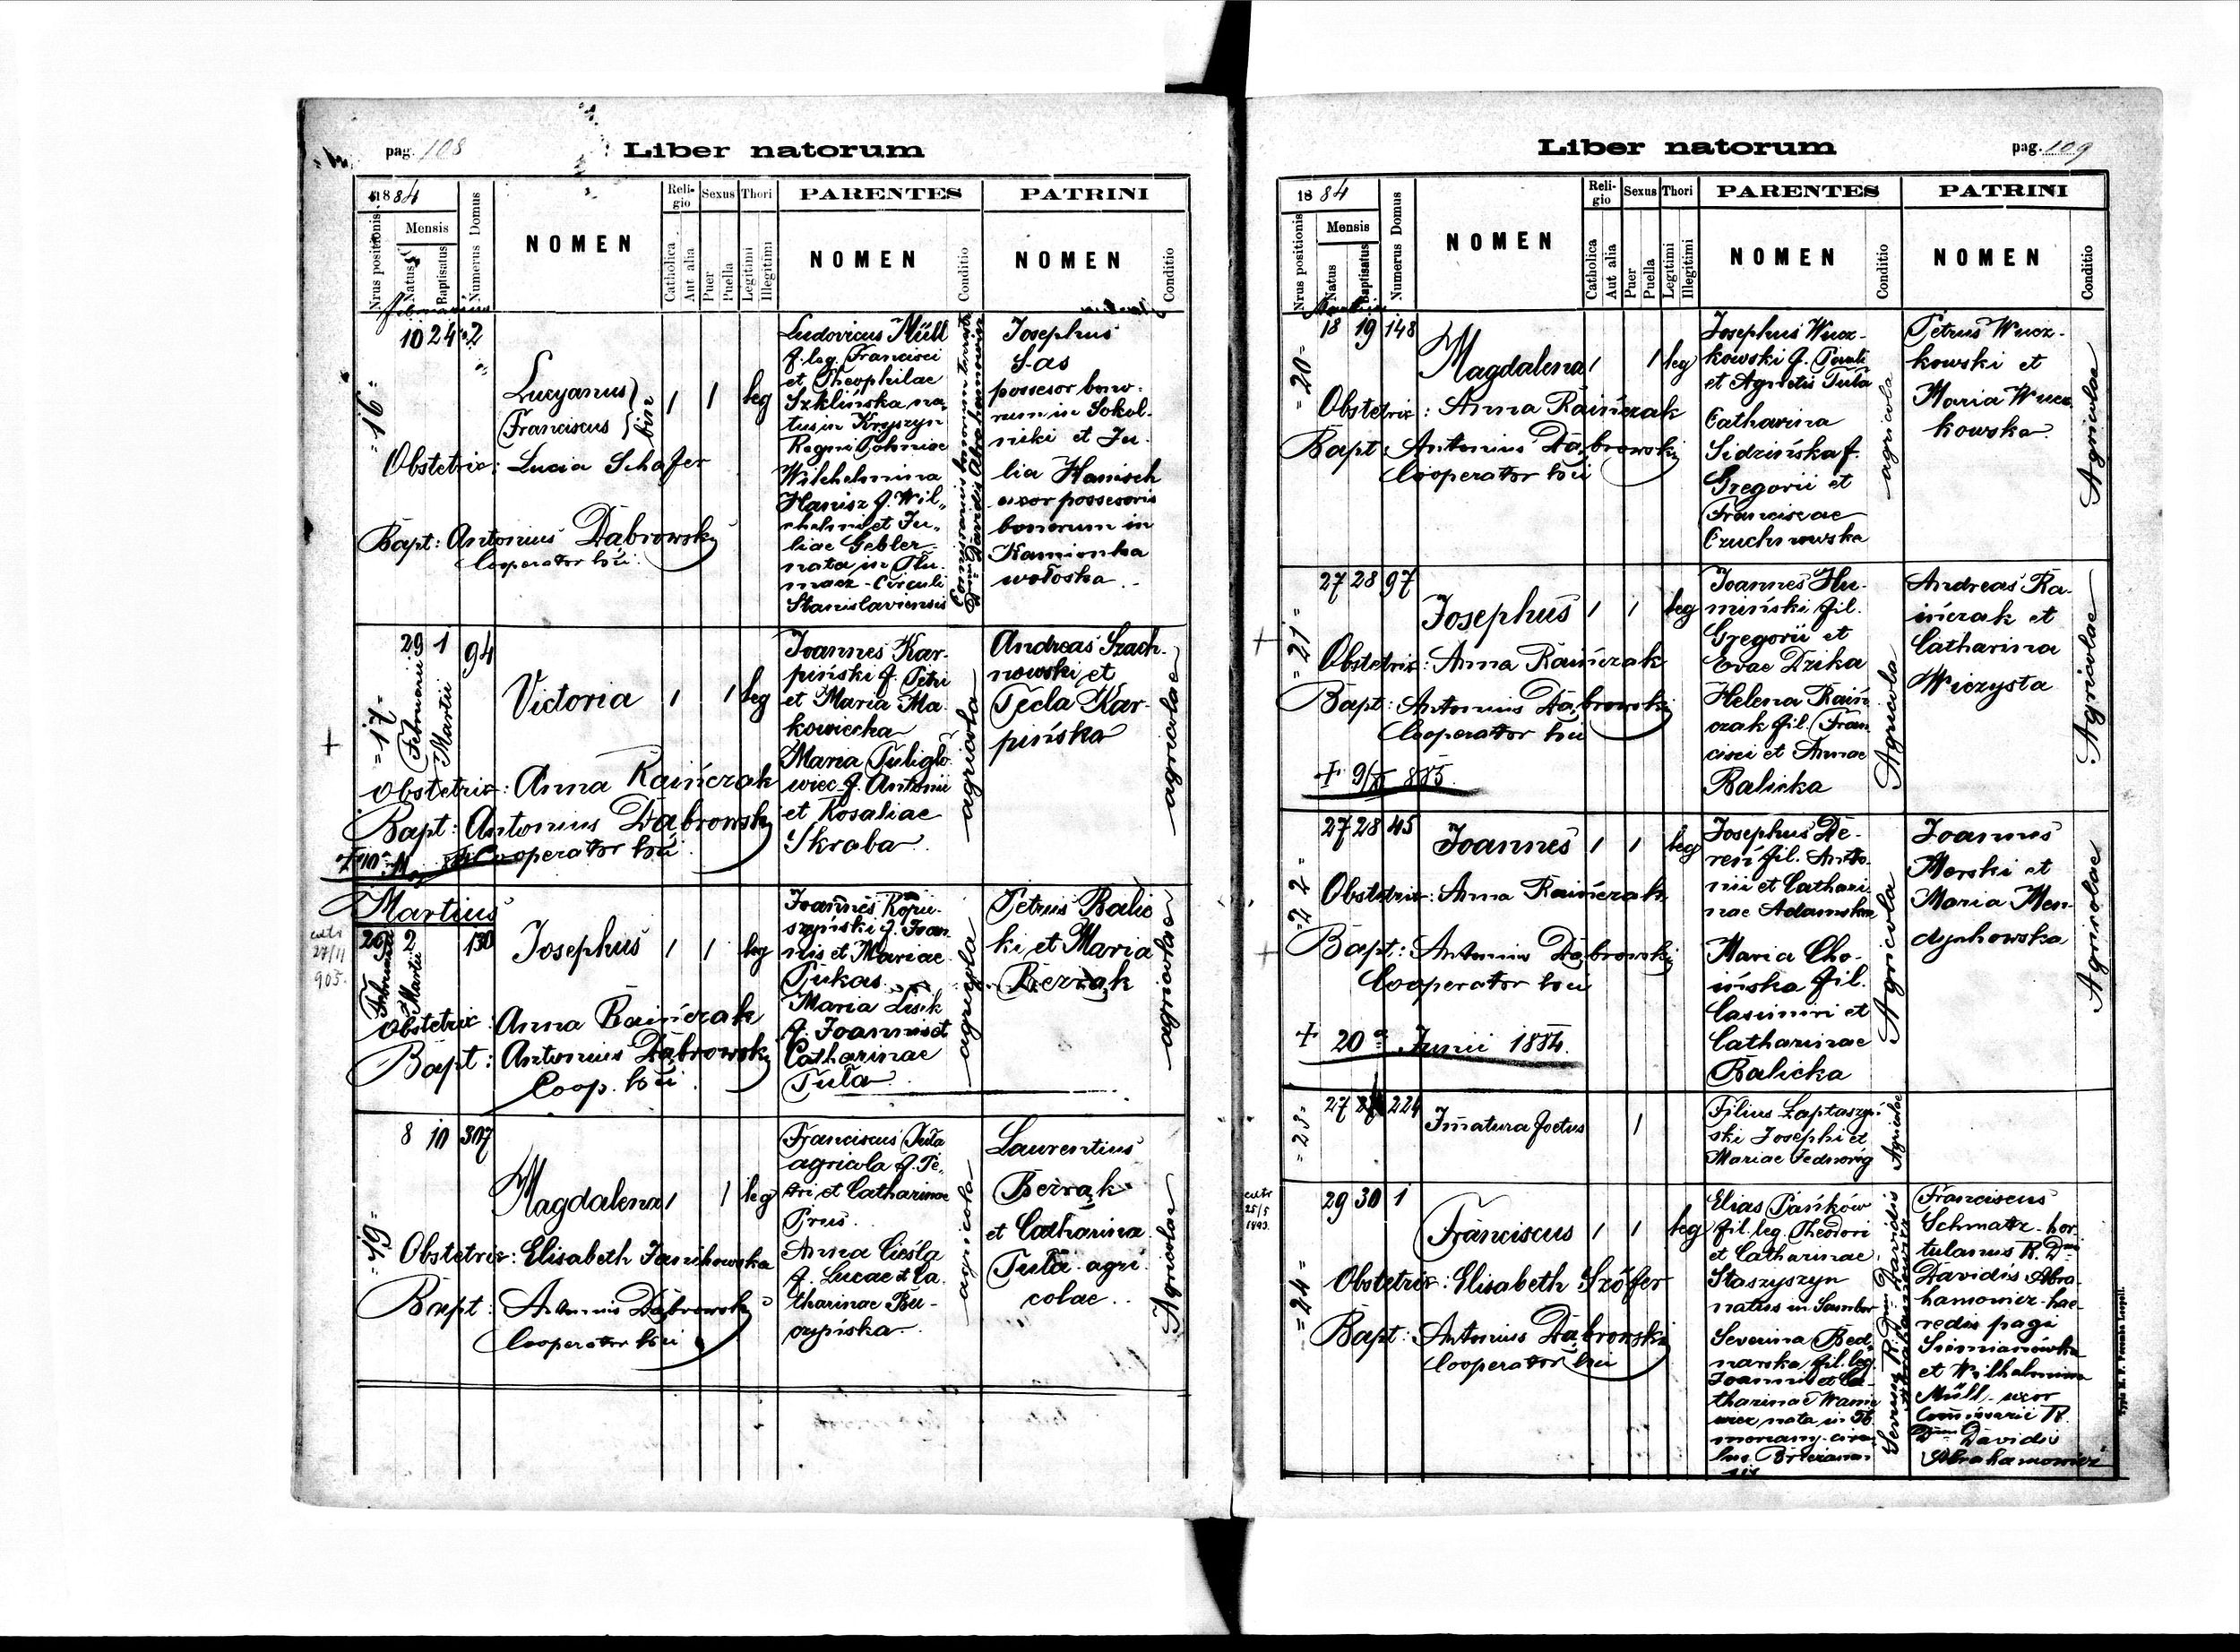 pag. 108
Liber natorum
1884
Nrus positionis
Mensis
Natus
Baptisatus
Numerus Domus
NOMEN
Religio
Catholica
Aut alia
Sexus
Puer
Puella
Thori
Legitimi
Illegitimi
PARENTES
NOMEN
Conditio
PATRINI
NOMEN
Conditio
Februarius
=16=
10 24 2
Lucyanus
Franciscus
bin
1 1 leg
Obstetrix: Lucia Schafer
Bapt: Antonius Dąbrowski
Cooperator loci
Ludovicus Müll
f. leg. Francisci
et Theophilae
Szklińska na
tus in Kryszyn
Regni Poloniae
Wilhelmina
Hanisz f. Wil„
helmi et Ju„
liae Gebler
nata in Tłu
macz - Circuli
Stanislaviensis
Davidis Abrahamowicz
Josephus
Sas
possesor bono-
rum in Sokol-
niki et Ju-
lia Hanisch
uxor possesoris
bonorum in
Kamionka
wołoska
=17=
29 1 94
Februarii
Martii
Victoria 1 1 leg
Obstetrix: Anna Rainczak
Bapt: Antonius Dąbrowski
Cooperator loci
Joannes Kar-
piński f. Petri
et Maria Ma
kowiecka
Maria Tuligło
wiec f. Antonii
et Rosaliae
Skraba
agricola
Andreas Szach-
nowski et
Tecla Kar-
pińska
agricolae
Martius
26 2 130
Februarii
Martii
extr
27/11
905.
Josephus 1 1 leg
Obstetrix: Anna Rainczak
Bapt: Antonius Dąbrowski
Coop. loci
Joannes Kopu-
szyński f. Joan
nis et Mariae
Pukas
Maria Lisik
f. Joannis et
Catharinae
Tuła
agricola
Petrus Balic
ki et Maria
Bezzak
agricolae
=19=
8 10 307
Magdalena 1 1 leg
Obstetrix: Elisabeth Janikowska
Bapt: Antonius Dąbrowski
Cooperator loci
Franciscus Tuła
agricola f. Pe-
tri et Catharinae
Prus
Anna Cieśla
f. Lucae et Ca
tharinae Bu-
czyńska
agricola
Laurentius
Bezzak
et Catharina
Tuła agri
colae
Agricolae
Liber natorum
pag. 109
1884
Nrus positionis
Mensis
Natus
Baptisatus
Numerus Domus
NOMEN
Religio
Catholica
Aut alia
Sexus
Puer
Puella
Thori
Legitimi
Illegitimi
PARENTES
NOMEN
Conditio
PATRINI
NOMEN
Conditio
Martius
=20=
18 19 148
Magdalena 1 1 leg
Obstetrix: Anna Rainczak
Bapt: Antonius Dąbrowski
Cooperator loci
Josephus Wucz-
kowski f. Pauli
et Agnetis Tuła
Catharina
Sidzińska f.
Gregorii et
Franciscae
Czuchnowska
agricola
Petrus Wucz-
kowski et
Maria Wucz
kowska
Agricolae
=21=
27 28 97
Josephus 1 1 leg
Obstetrix: Anna Rainczak
Bapt: Antonius Dąbrowski
Cooperator loci
+ 9/X 885.
Joannes Hu-
miński fil.
Gregorii et
Evae Dzika
Helena Rain
czak fil. Fran
cisci et Annae
Balicka
Agricola
Andreas Ra-
ińczak et
Catharina
Wiczysta
Agricolae
=22=
27 28 45
Joannes 1 1 leg
Obstetrix: Anna Rainczak
Bapt: Antonius Dąbrowski
Cooperator loci
+ 20a Junii 1884.
Josephus De-
reń fil. Anto-
nii et Cathari
nae Adamska
Maria Cho-
ińska fil.
Casimiri et
Catharinae
Balicka
Agricola
Joannes
Morski et
Maria Men
dychowska
Agricolae
=23=
27 28 224
Imatura foetus 1
Filius Łaptaszyń
ski Josephi et
Mariae Jednoróg
Agricolae
=24=
29 30 1
extr
25/5
1893.
Franciscus 1 1 leg
Obstetrix: Elisabeth Szöfer
Bapt: Antonius Dąbrowski
Cooperator loci
Elias Pańków
fil. leg. Theodori
et Catharinae
Staszyszyn
natus in Sambor
Severina Bed„
narska fil. leg.
Joannis et Ca-
tharinae Wanie
wicz nata in
Brzezanen
sis
Davidis
Abrahamowicz
Franciscus
Schmatz-hor
tulanus R. Dni
Davidis Abra-
hamowicz-hae-
redis pagi
Siemianówka
et Wilhelmina
Müll-uxor
Comissarii R.
Dni Davidis
Abrahamowicz